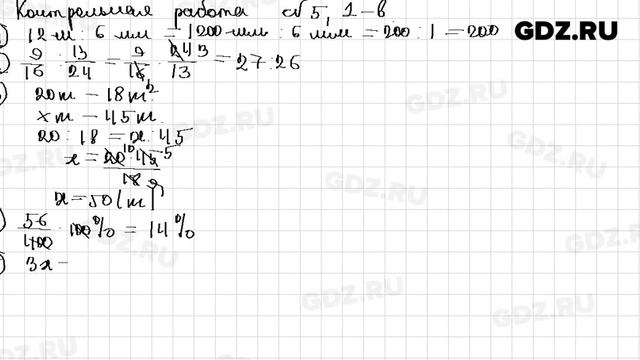 Контрольная работа №5, 1-в
GDZ.RU
12 м : 6 мм = 1200 мм : 6 мм = 200 : 1 = 200
9/16 : 13/24 = 9/16 · 24 3/13 = 27 : 26
20т – 18м²
xт – 45м
20 : 18 = x : 45
x = 20 10 · 45 5 / 18 9
x = 50 (т)
56/400 · 100% = 14%
3x –